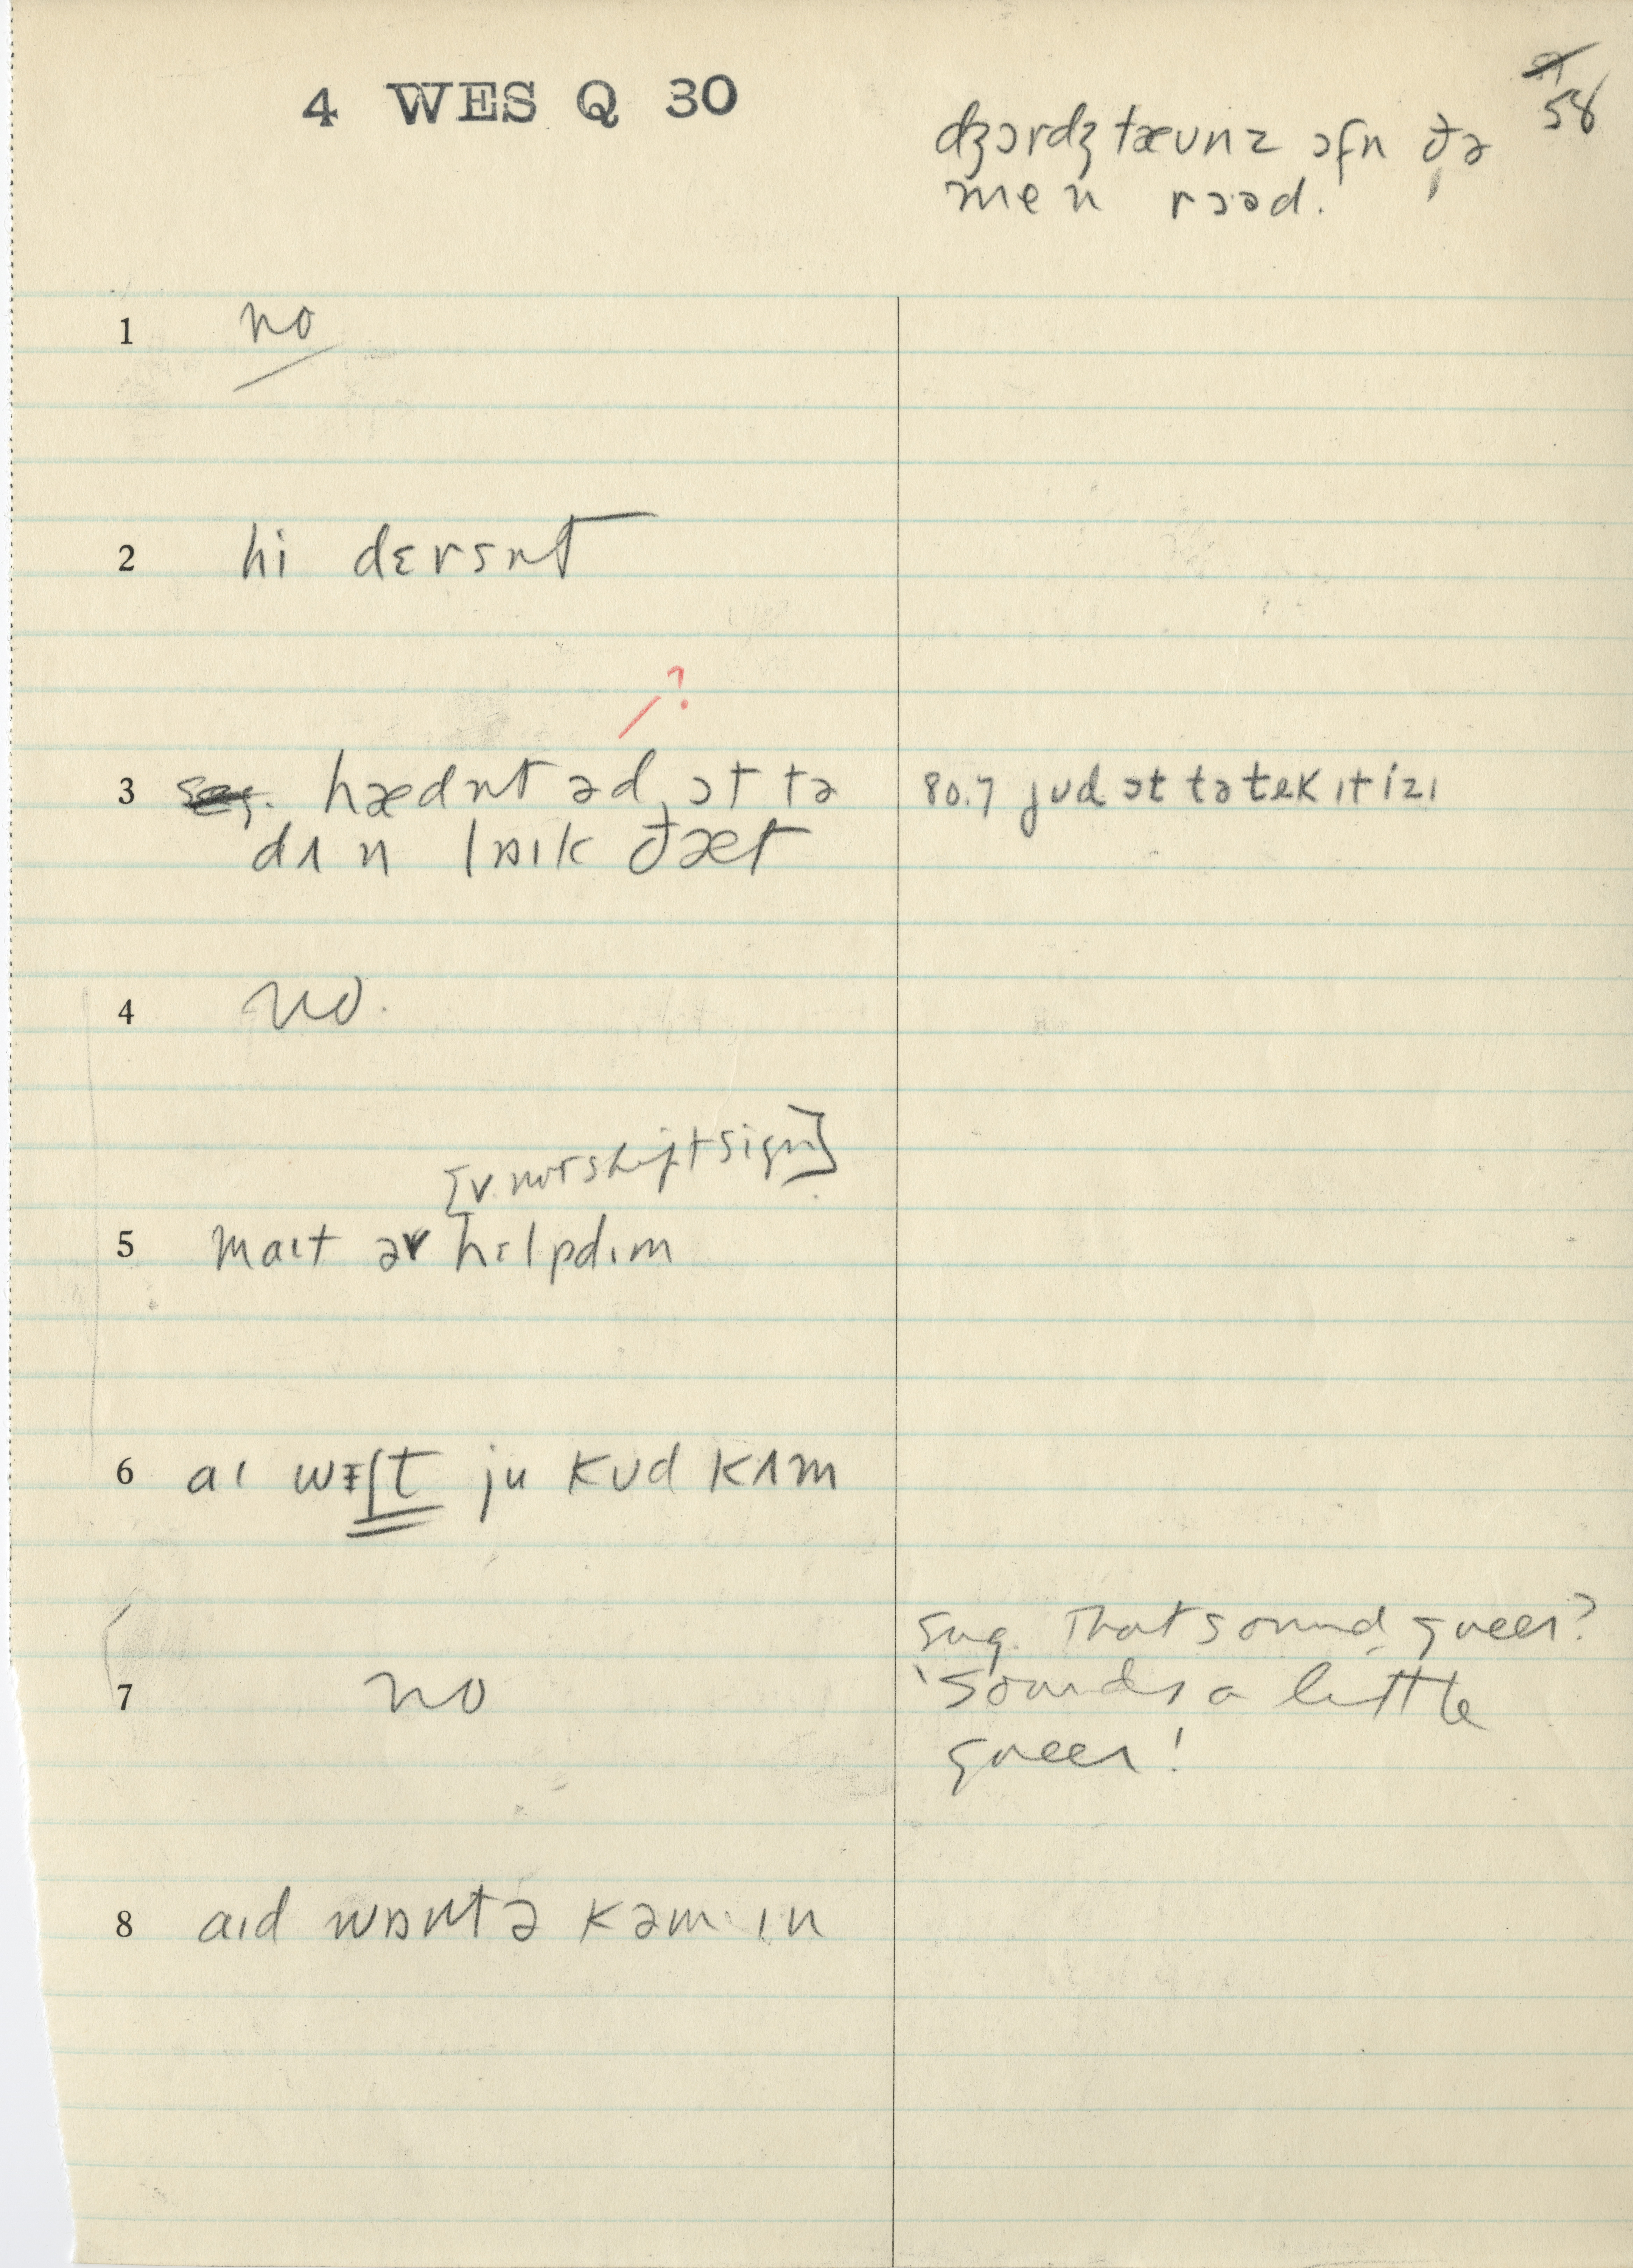 4 WES Q 30
58
dʒɔrdʒtæʊnz ɔfn ðə
men rɔəd.
1 no
2 hi dɛrsnt
?
3 hædnt əd ɔt tə
dʌn lɒɪk ðæt
80.7 jud ɔt tə tek ɪt izɪ
4 no.
[v. not shift sign]
5 maɪt əv hɛlpdɪm
6 aɪ wɪʃt ju kʊd kʌm
7 no
sug. That sound queer?
'Sounds a little
queer!
8 aɪd wɒntə kəm ɪn